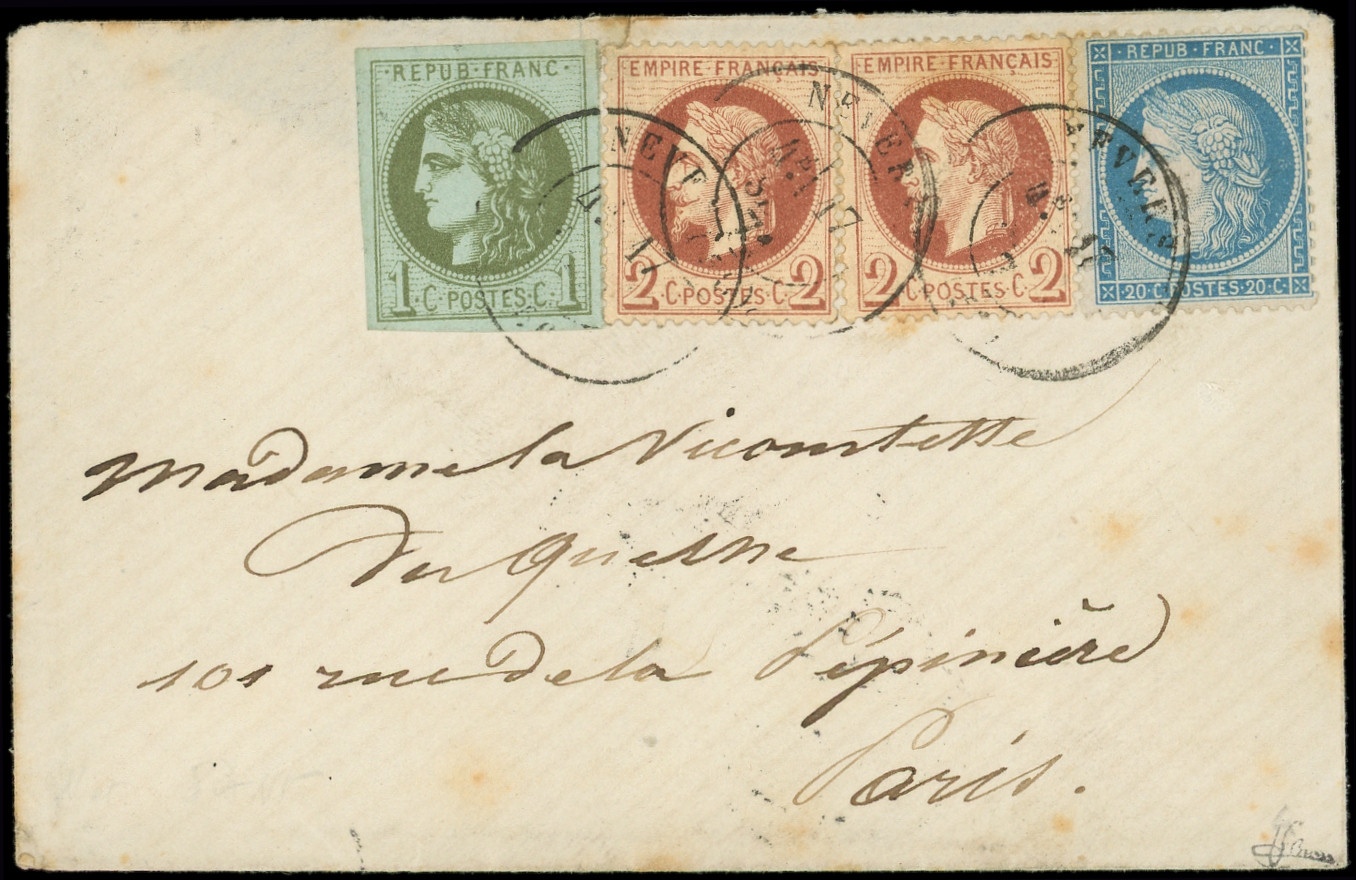 REPUB·FRANC
1·C·POSTES·C·1
EMPIRE·FRANÇAIS
2·C·POSTES·C·2
EMPIRE·FRANÇAIS
2·C·POSTES·C·2
REPUB·FRANC
20·C·POSTES·20·C
NEVE
NEVER
NEVERS
Madame la Vicomtesse
Du Quesne
101 rue de la Pépinière
Paris.